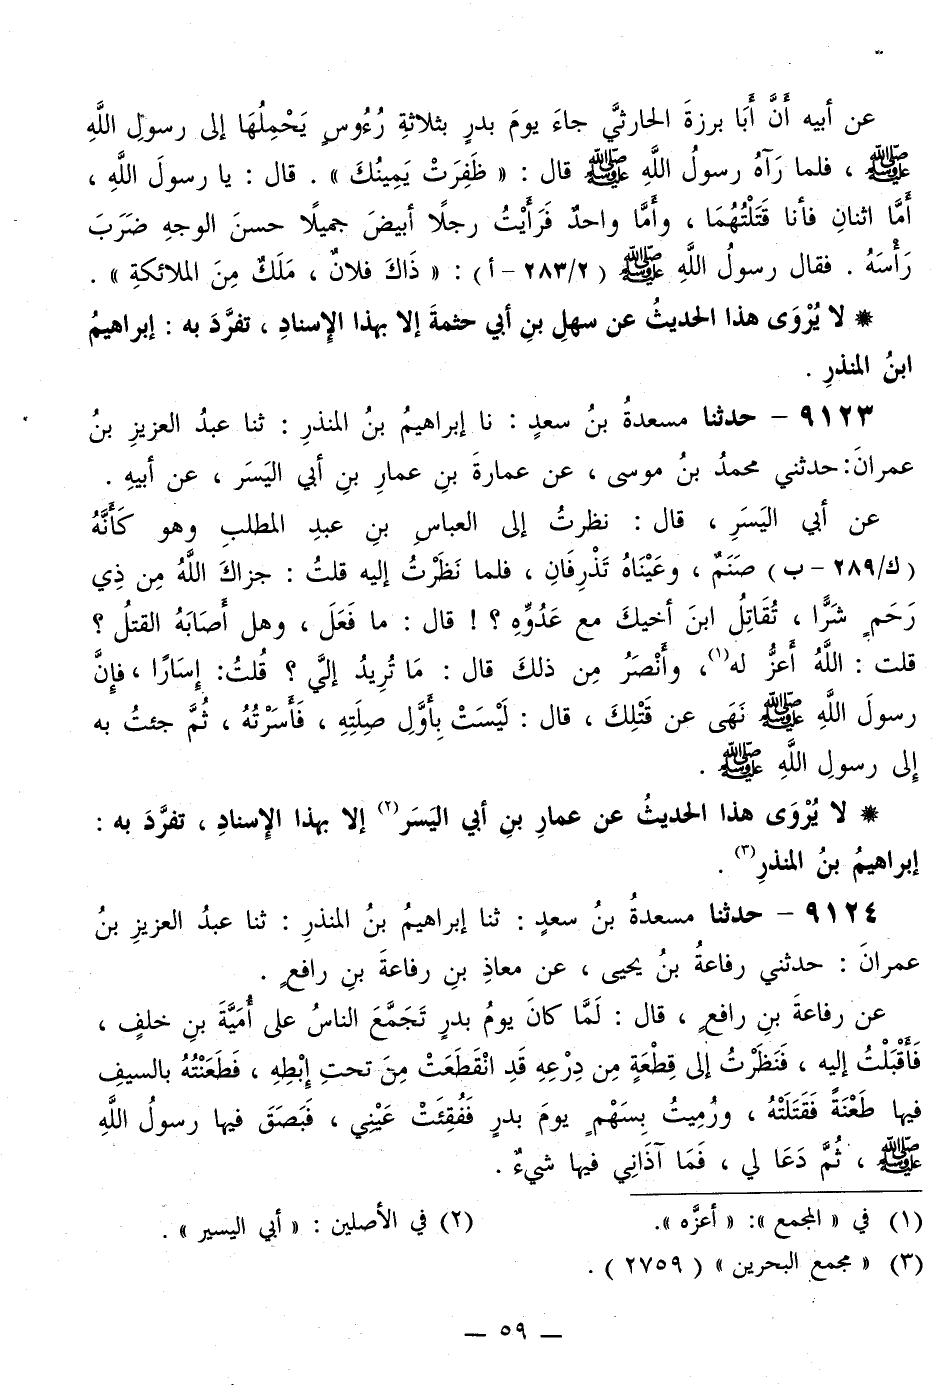 عن أبيه أَنَّ أَبَا برزةَ الحارثيَّ جاءَ يومَ بدرٍ بثلاثةِ رُءُوسٍ يَحْمِلُهَا إلى رسولِ اللَّهِ
ﷺ ، فلما رَآهُ رسولُ اللَّهِ ﷺ قال : « ظَفِرَتْ يَمِينُكَ » . قال : يا رسولَ اللَّهِ ،
أَمَّا اثنانِ فأنا قَتَلْتُهُمَا ، وأَمَّا واحدٌ فَرَأَيْتُ رجلًا أبيضَ جميلًا حسنَ الوجهِ ضَرَبَ
رَأْسَهُ . فقال رسولُ اللَّهِ ﷺ ( ٢٨٣/٢ - أ ) : « ذَاكَ فلانٌ ، مَلَكٌ مِنَ الملائكةِ » .
* لا يُرْوَى هذا الحديثُ عن سهلِ بنِ أبي حثمةَ إلا بهذا الإِسنادِ ، تفرَّدَ به : إبراهيمُ
ابنُ المنذرِ .
٩١٢٣ - حدثنا مسعدةُ بنُ سعدٍ : نا إبراهيمُ بنُ المنذرِ : ثنا عبدُ العزيزِ بنُ
عمرانَ: حدثني محمدُ بنُ موسى ، عن عمارةَ بنِ عمارِ بنِ أبي اليَسَر ، عن أبيهِ .
عن أبي اليَسَرِ ، قال : نظرتُ إلى العباسِ بنِ عبدِ المطلبِ وهو كَأَنَّهُ
( ك/٢٨٩ - ب ) صَنَمٌ ، وعَيْنَاهُ تَذْرِفَانِ ، فلما نَظَرْتُ إليه قلتُ : جزاكَ اللَّهُ مِن ذِي
رَحَمٍ شَرًّا ، تُقَاتِلُ ابنَ أخيكَ مع عَدُوِّهِ ؟ ! قال : ما فَعَلَ ، وهل أَصَابَهُ القتلُ ؟
قلت : اللَّهُ أَعزُّ له(١)، وأَنْصَرُ مِن ذلكَ قال : مَا تُرِيدُ إليَّ ؟ قُلتُ: إِسَارًا ، فإِنَّ
رسولَ اللَّهِ ﷺ نَهَى عن قَتْلِكَ ، قال : لَيْسَتْ بِأَوَّلِ صِلَتِهِ ، فَأَسَرْتُهُ ، ثُمَّ جئتُ به
إلى رسولِ اللَّهِ ﷺ .
* لا يُرْوَى هذا الحديثُ عن عمارِ بنِ أبي اليَسَر(٢) إلا بهذا الإِسنادِ ، تفرَّدَ به :
إبراهيمُ بنُ المنذرِ(٣) .
٩١٢٤ - حدثنا مسعدةُ بنُ سعدٍ : ثنا إبراهيمُ بنُ المنذرِ : ثنا عبدُ العزيزِ بنُ
عمرانَ : حدثني رفاعةُ بنُ يحيى ، عن معاذِ بنِ رفاعةَ بنِ رافعٍ .
عن رفاعةَ بنِ رافعٍ ، قال : لَمَّا كانَ يومُ بدرٍ تَجَمَّعَ الناسُ على أُمَيَّةَ بنِ خلفٍ ،
فَأَقْبَلْتُ إليه ، فَنَظَرْتُ إلى قِطْعَةٍ مِن دِرْعِهِ قَدِ انْقَطَعَتْ مِنَ تحتِ إِبْطِهِ ، فَطَعَنْتُهُ بالسيفِ
فيها طَعْنَةً فَقَتَلَتْهُ ، ورُمِيتُ بِسَهْمٍ يومَ بدرٍ فَفُقِئَتْ عَيْنِي ، فَبَصَقَ فيها رسولُ اللَّهِ
ﷺ ، ثُمَّ دَعَا لي ، فَمَا آذَانِي فيها شيءٌ .
(١) في « المجمع »: « أعزَّه ».
(٢) في الأصلين : « أبي اليسير » .
(٣) « مجمع البحرين » ( ٢٧٥٩ ) .
— ٥٩ —